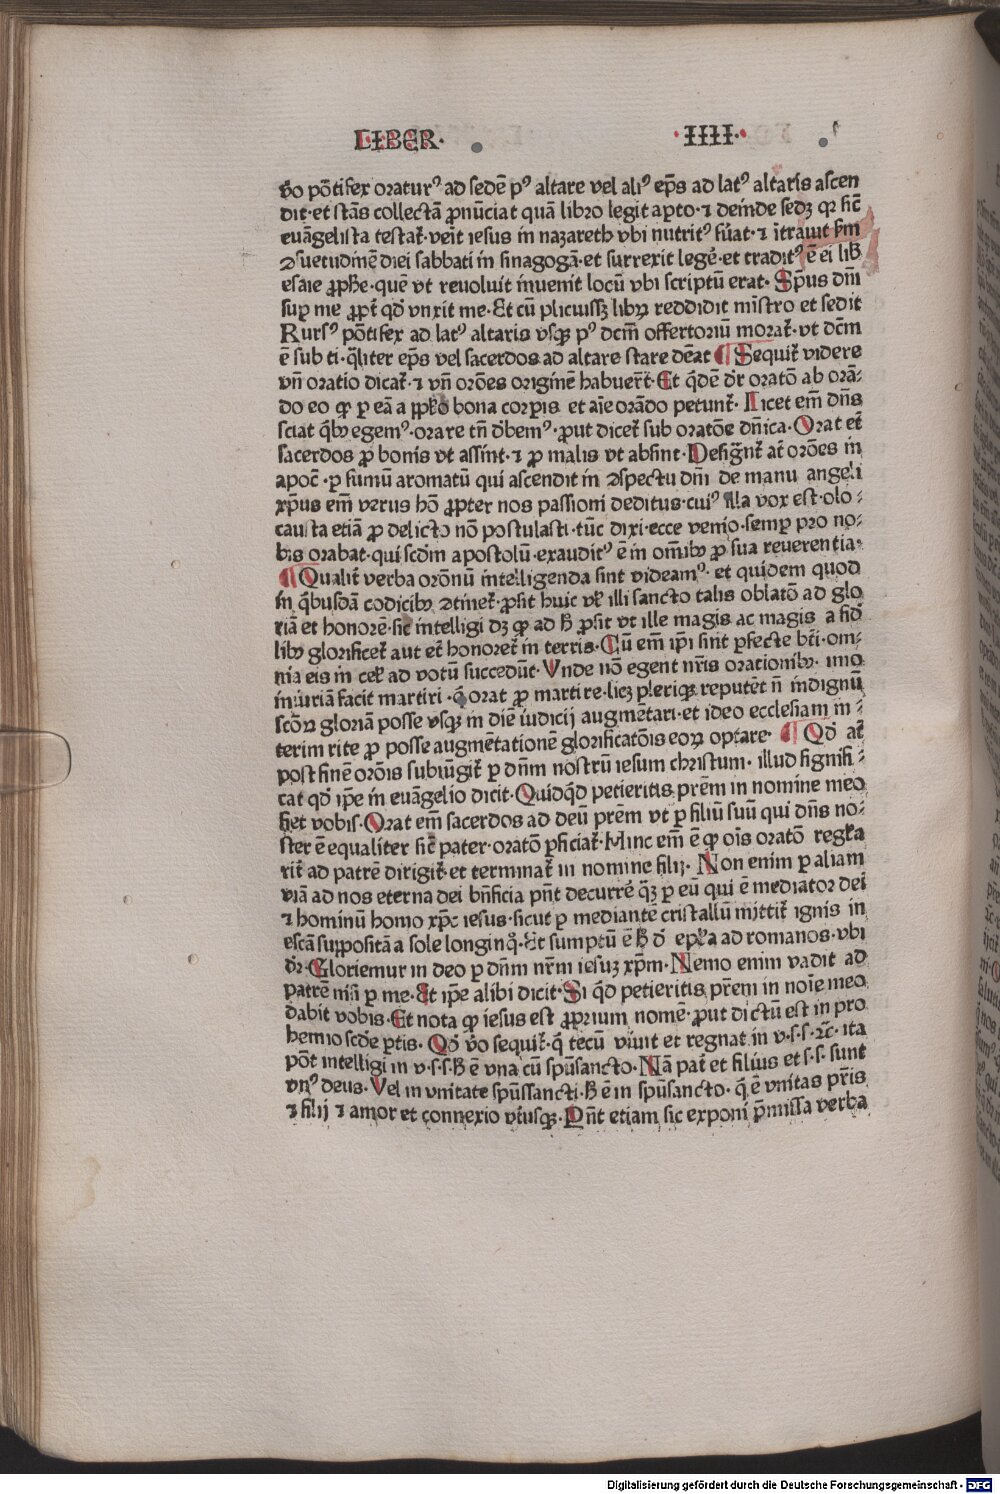 LIBER. .IIII.
v̄o põtifex oraturꝰ ad sedē pꝰ altare vel aliꝰ ep̄s ad latꝰ altaris ascen
dit·et stās collectā ꝓnūciat quā libro legit aꝑto·⁊ deinde sedꝫ qꝛ sic̄
euāgelista testat̄·veīt iesus in nazareth vbi nutritꝰ fūat·⁊ ītrauit s̄m
ꝯsuetudinē diei sabbati in sinagogā·et surrexit legē·et traditꝰ ē ei lib̄
esaie ꝓph̄e·quē vt reuoluit inuenit locū vbi scriptū erat· Sp̄us dn̄i
suꝑ me ꝓpt̄ qd̄ vnxit me·Et cū plicuissꝫ libꝝ reddidit mīstro et sedit
Rursꝰ põtifex ad latꝰ altaris vsqꝫ pꝰ dcm̄ offertoriū morat̄·vt dcm̄
ē sub ti·q̄liter ep̄s vel sacerdos ad altare stare de̅at ¶ Sequit̄ videre
vn̄ oratio dicat̄·⁊ vn̄ orōes originē habuer̄t·Et q̄dē dr̄ oratō ab orā⸗
do eo ꝙ ꝑ eā a ꝓp̄o bona corꝑis et aīe orādo petunt̄· Licet em̄ dn̄s
sciat q̄bꝫ egemꝰ·orare tn̄ d̄bemꝰ·ꝓut dicet̄ sub oratōe dn̄ica·Orat et̄
sacerdos ꝓ bonis vt assint·⁊ ꝓ malis vt absint·Desig̅nt̄ at̄ orōes in
apoc̄·ꝑ fumū aromatū qui ascendit in ꝯspectu dn̄i de manu angeli
xp̄us em̄ verus hō ꝓpter nos passioni deditus·cuiꝰ illa vox est·olo⸗
causta etiā ꝓ delicto nō postulasti·tūc dixi·ecce venio·semꝑ pro no⸗
bis orabat·qui scd̄m apostolū·exauditꝰ ē in om̄ibꝫ ꝓ sua reuerentia·
¶Qualit̄ verba orōnū intelligenda sint videamꝰ· et quidem quod
in q̄busdā codicibꝫ ꝯtinet̄·ꝓsit huic vl̄ illi sancto talis oblatō ad glo
riā et honorē·sic̄ intelligi dꝫ ꝙ ad h̄ ꝓsit vt ille magis ac magis a fid̄
libꝫ glorificet̄ aut et̄ honoret̄ in terris·Cū em̄ ip̄i sint ꝑfecte bt̄i·om⸗
nia eis in cel̄ ad votū succedūt·Vnde nō egent nr̄is orationibꝫ· imo
iniuriā facit martiri·q̄ orat ꝓ martire·licꝫ pleriqꝫ reputēt n̄ indignū
scōꝝ gloriā posse vsqꝫ in diē iudicij augmētari·et ideo ecclesiam in⸗
terim rite ꝓ posse augmētationē glorificatōis eoꝝ optare· ¶ Qd̄ at̄
post finē orōis subiūgit̄ ꝑ dn̄m nostrū iesum christum· illud signifi⸗
cat qd̄ ip̄e in euāgelio dicit·Quidq̄d petieritis pr̄em in nomine meo
fiet vobis·Orat em̄ sacerdos ad deū pr̄em vt ꝑ filiū suū qui dn̄s no⸗
ster ē equaliter sic̄ pater·oratō ꝑficiat̄·Hinc em̄ ē ꝙ oīs oratō regl̄a
rit̄ ad patrē dirigit̄·et terminat̄ in nomine filij· Non enim ꝑ aliam
viā ad nos eterna dei bn̄ficia pn̄t decurrē q̄ꝫ ꝑ eū qui ē mediator dei
⁊ hominū homo xp̄c iesus·sicut ꝑ mediantē cristallū mittit̄ ignis in
escā suppositā a sole longinq̄·Et sumptū ē h̄ d̄ ep̄l̄a ad romanos·vbi
dr̄·Gloriemur in deo ꝑ dn̄m nr̄m iesuꝫ xp̄m·Nemo enim vadit ad
patrē nisi ꝑ me·Et ip̄e alibi dicit·Si q̄d petieritis pr̄em in noīe meo
dabit vobis·Et nota ꝙ iesus est ꝓprium nomē·ꝓut dictū est in pro
hemio scd̄e ꝑtis· Qd̄ v̄o sequit̄·q̄ tecū viuit et regnat in v·s·s·⁊c̄· ita
põt intelligi in v·s·s·h̄ ē vna cū sp̄usancto·Nā pat̄ et filius et s·s· sunt
vnꝰ deus·Vel in vnitate sp̄ussancti·h̄ ē in sp̄usancto· q̄ ē vnitas pr̄is
⁊ filij ⁊ amor et connexio vt̄iusqꝫ·Pn̄t etiam sic exponi p̄missa verba
Digitalisierung gefördert durch die Deutsche Forschungsgemeinschaft - DFG